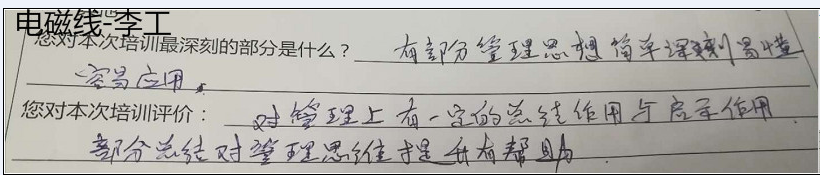 电磁线-李工
您对本次培训最深刻的部分是什么？ 有部分管理思想简单深刻易懂
容易应用。
您对本次培训评价： 对管理上有一定的总结作用与启示作用.
部分总结对管理思维提升有帮助.